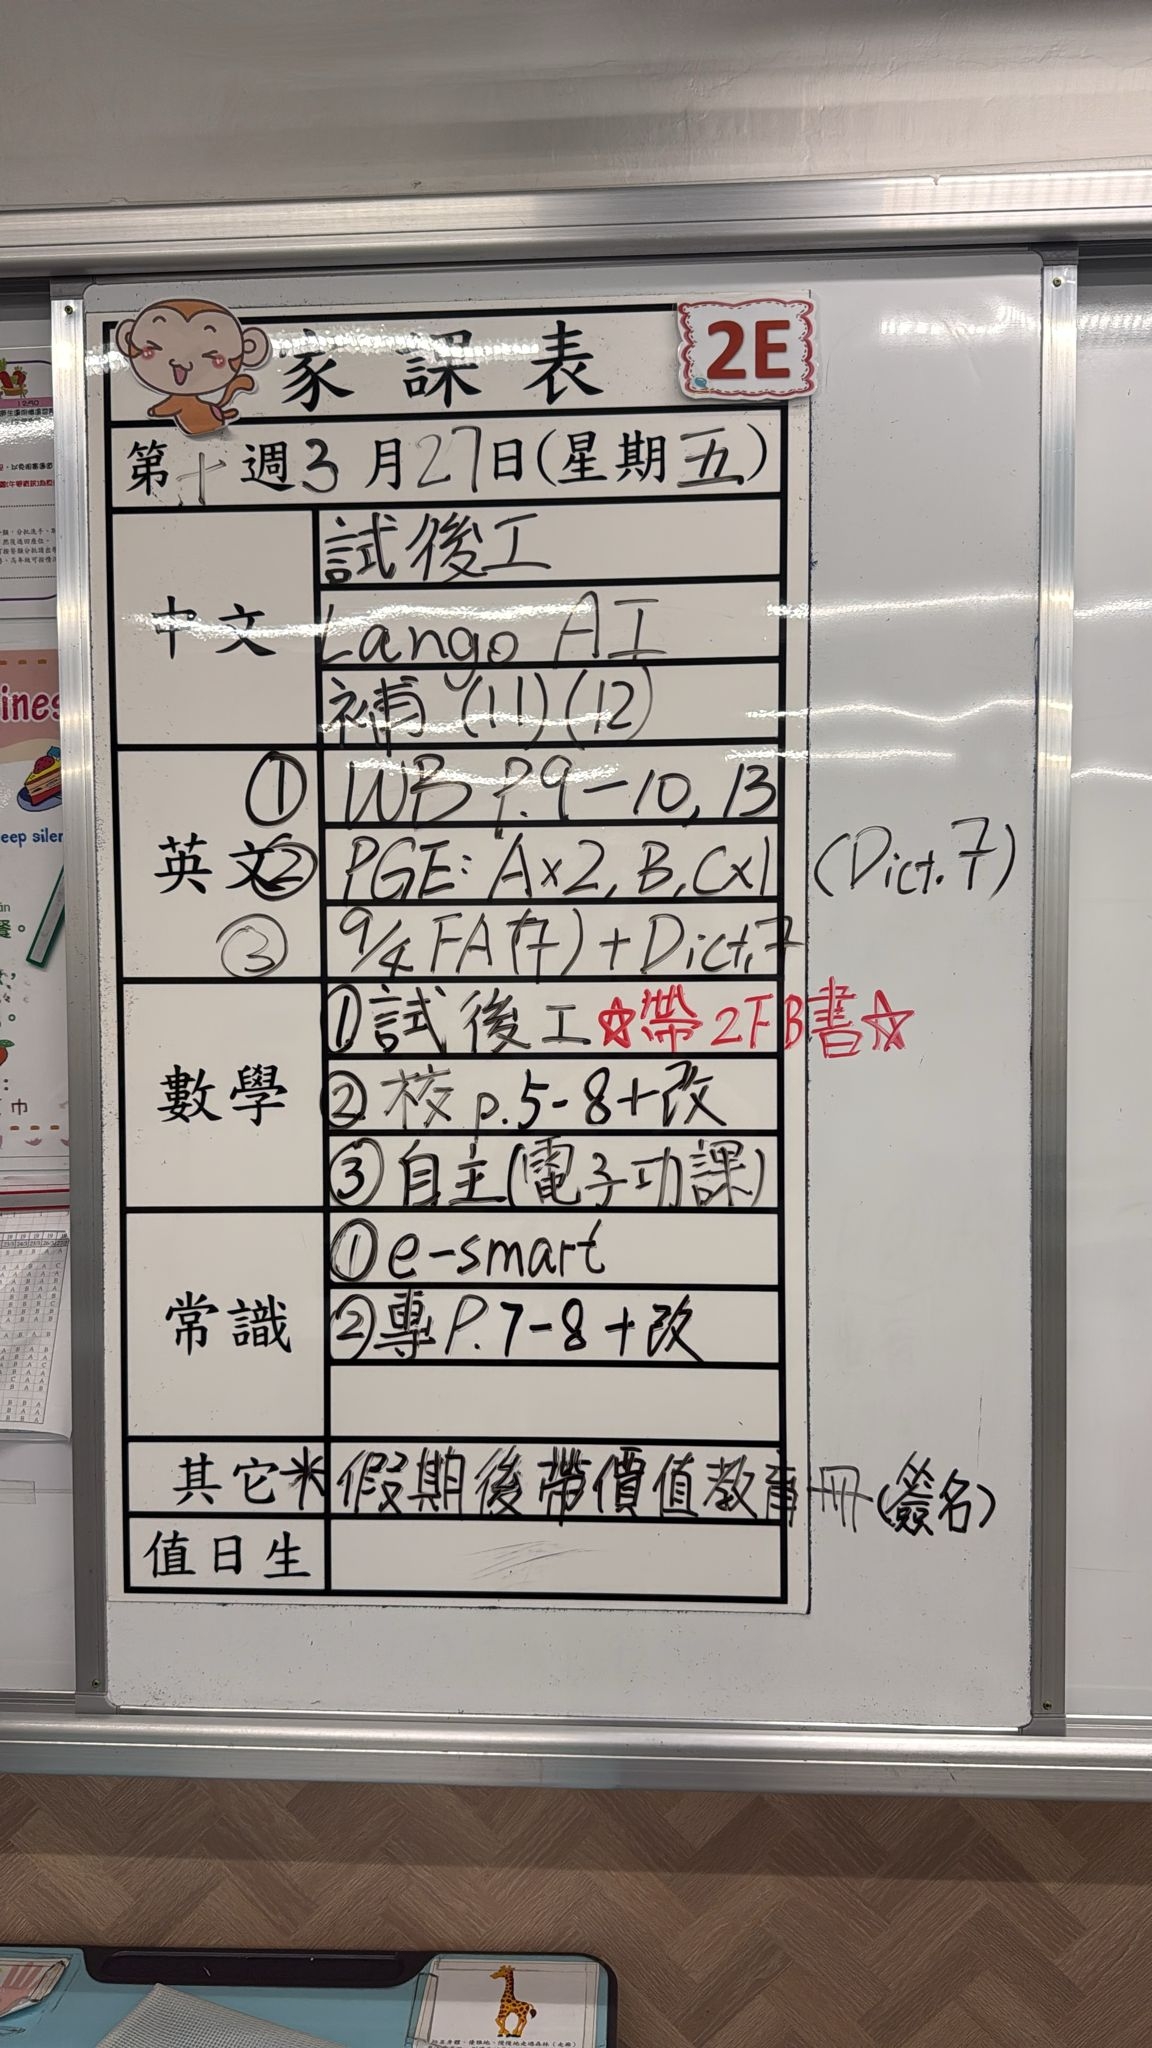 家課表 2E
第十週3月27日(星期五)
中文
試後工
Lango AI
補 (11)(12)
英文
① WB P.9-10, 13
② PGE: A×2, B, C×1 (Dict. 7)
③ 9/4 FA(7) + Dict. 7
數學
①試後工☆帶2FB書☆
②校p.5-8+改
③自主(電子功課)
常識
①e-smart
②專P.7-8+改
其它
*假期後帶價值教育冊(簽名)
值日生
12:50
ines
eep silen
餐。
巾